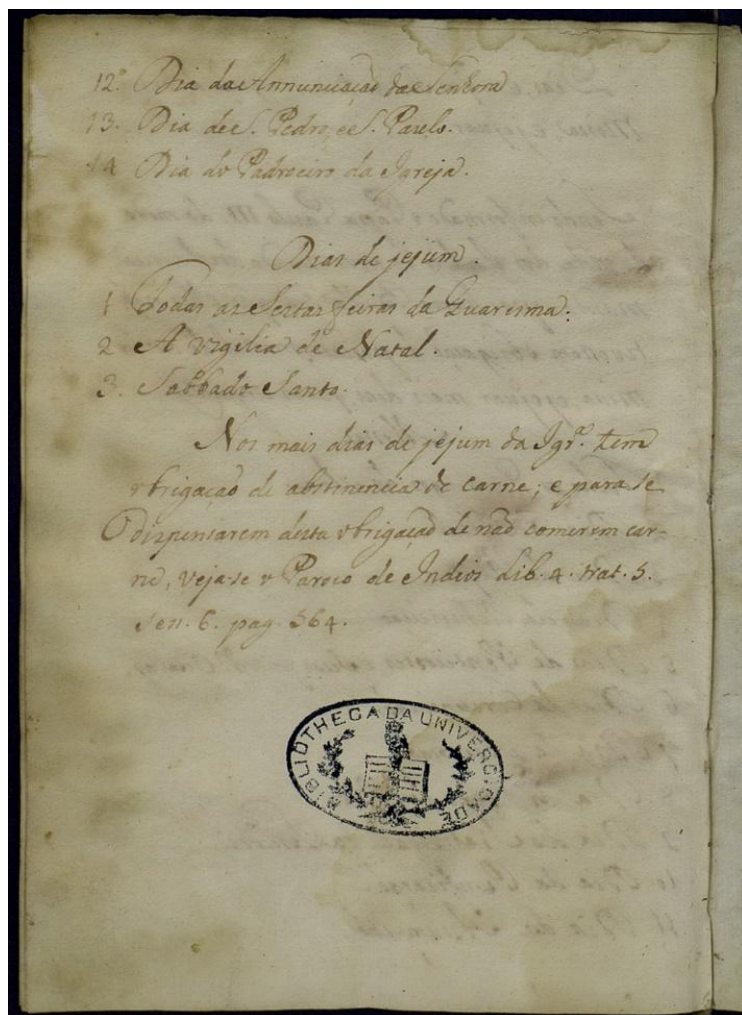 12. Dia da Annunciação da Senhora
13. Dia de S. Pedro, e S. Paulo.
14 Dia do Padroeiro da Igreja.
Dias de jejum.
1 Todas as Sestas feiras da Quaresma.
2 A vigilia de Natal.
3. Sabbado Santo.
Nos mais dias de jejum da Igrª. tem
obrigação de abstinencia de carne; e para se
dispensarem desta obrigação de não comerem car-
ne, veja-se o Paroco de Indios Lib. 4. trat. 5.
Sess. 6. pag. 564.
BIBLIOTHECA DA UNIVERSIDADE